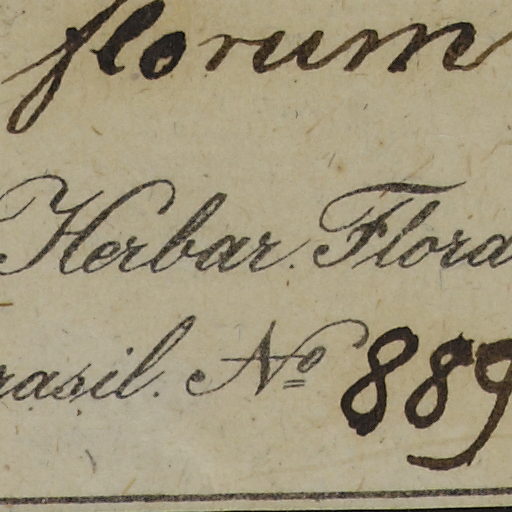 florum
Herbar. Flora
rasil. Nº 889